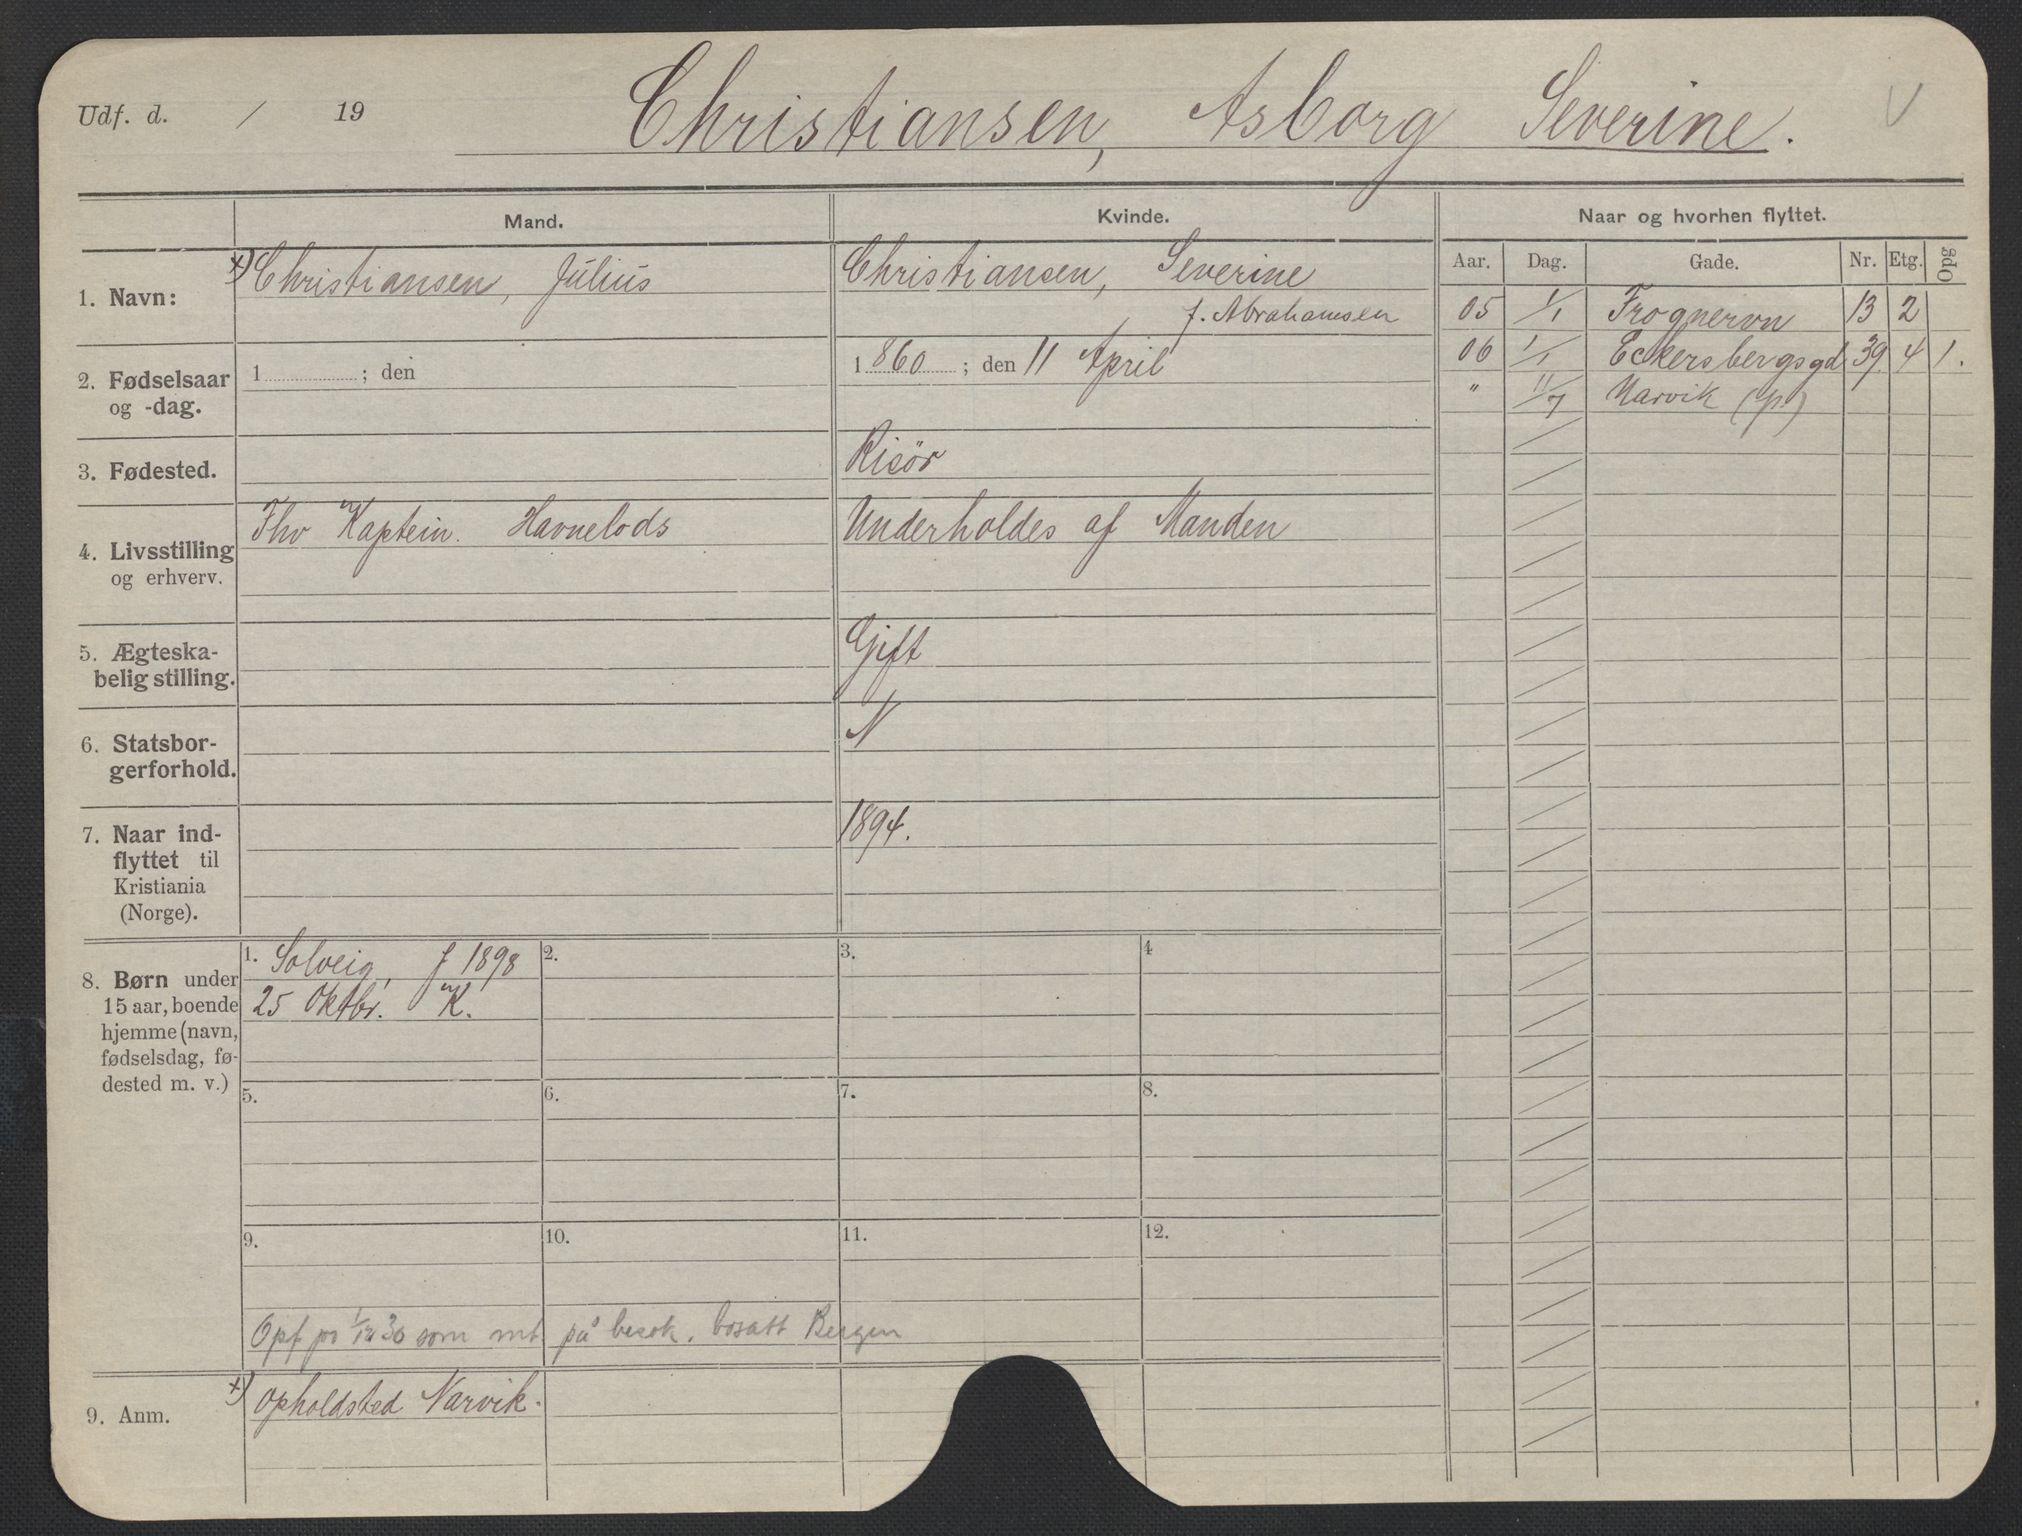 Udf. d. / 19
Christiansen, Asborg Severine.
V
Mand.
Kvinde.
Naar og hvorhen flyttet.
Aar. Dag. Gade. Nr. Etg. Opg
1. Navn:
x) Christiansen, Julius
Christiansen, Severine
f. Abrahamsen
05 1/1 Frognervn 13 2
06 1/1 Eckersbergsgd 39. 4 1.
" 11/7 Narvik (p)
2. Fødselsaar
og -dag.
1 ; den
1 860 ; den 11 April
3. Fødested.
Risör
4. Livsstilling
og erhverv.
Fhv Kaptein. Havnelods
Underholdes af Manden
5. Ægteska-
belig stilling.
Gift
6. Statsbor-
gerforhold.
N
7. Naar ind-
flyttet til
Kristiania
(Norge).
1894.
8. Børn under
15 aar, boende
hjemme (navn,
fødselsdag, fø-
dested m. v.)
1. Solveig, f 1898
25 Oktbr. K.
2.
3.
4
5.
6.
7.
8.
9.
10.
11.
12.
Opf pr 1/12 30 som mt på besøk. bosatt Bergen
9. Anm.
x) Opholdsted Narvik.